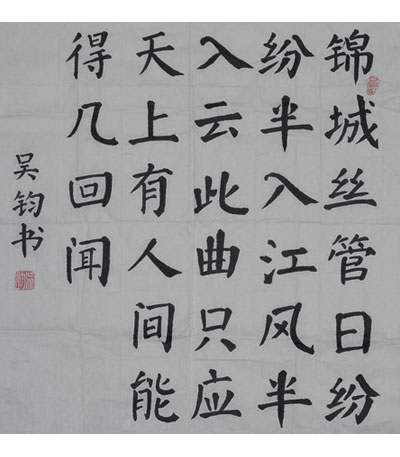 锦城丝管日纷
纷半入江风半
入云此曲只应
天上有人间能
得几回闻
吴钧书